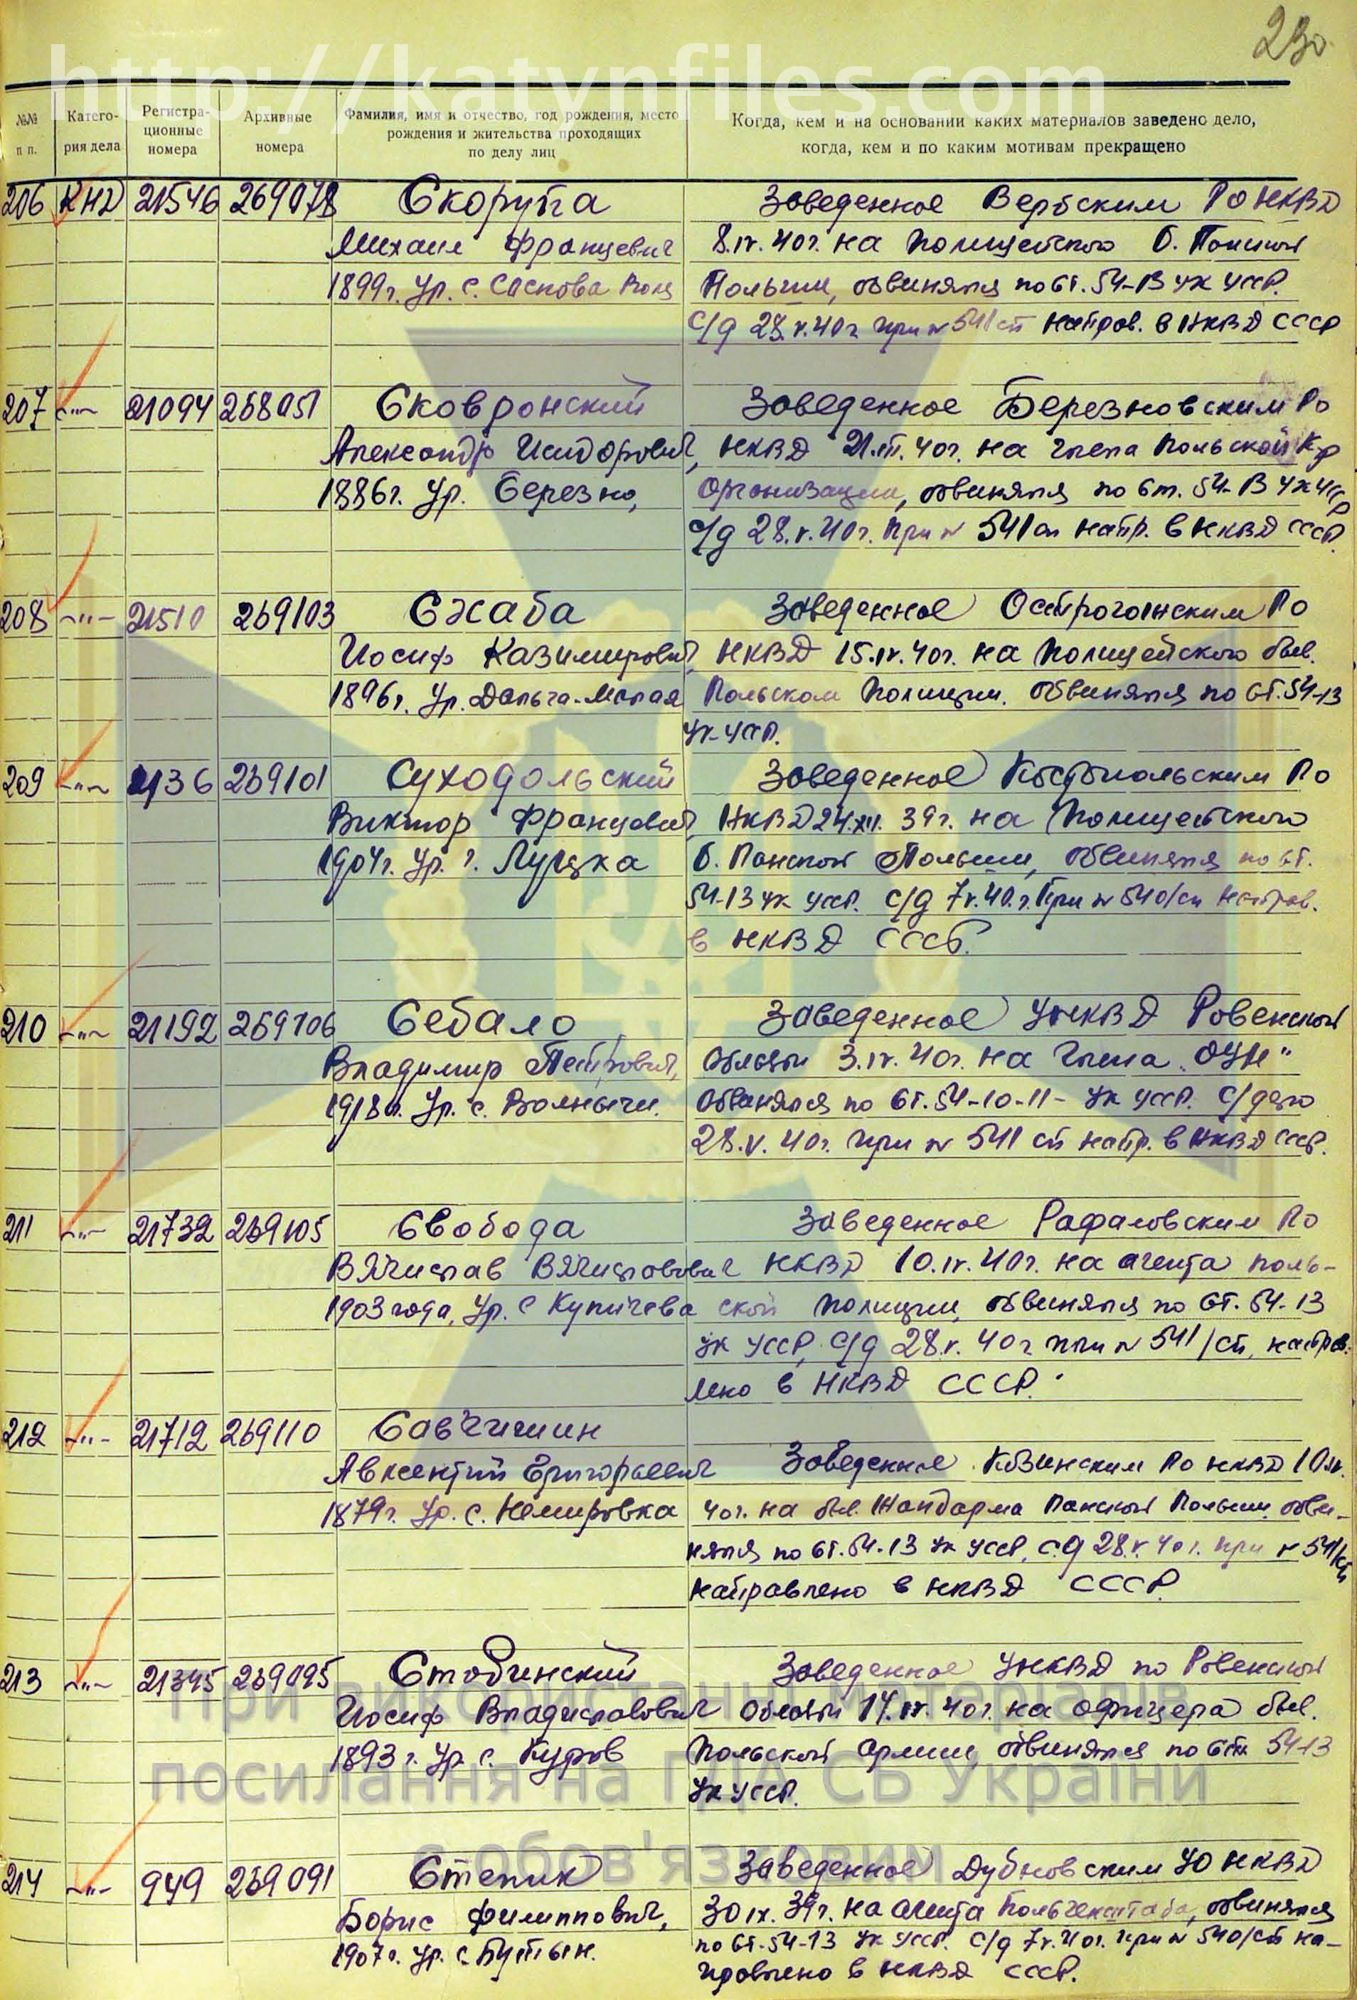 230
http://katynfiles.com
№№ п п.
Катего-
рия дела
Регистра-
ционные
номера
Архивные
номера
Фамилия, имя и отчество, год рождения, место
рождения и жительства проходящих
по делу лиц
Когда, кем и на основании каких материалов заведено дело,
когда, кем и по каким мотивам прекращено
206 КНД 21546 269078 Скорупа Заведенное Вербским РО НКВД
Михаил Францевич 8.IV.40г. на Полицейского б. Панской
1899г. Ур. с. Саснова Воля Польши, обвинялся по ст. 54-13 УК УССР.
С/д 28.V.40г при № 541/сп направ. в НКВД СССР
207 —"— 21094 Сковронский Заведенное Березновским РО
Александр Исидорович, НКВД 21.III.40г. на члена Польской К-р
1886г. Ур. Березно, Организации, обвинялся по ст. 54-13 УК УССР
с/д 28.V.40г. при № 541 сп напр. в НКВД СССР.
208 —"— 21510 269103 Сжаба Заведенное Острогожским РО
Иосиф Казимирович НКВД 15.IV.40г. на Полицейского был.
1896г. Ур. Польском Полиции. обвинялся по ст. 54-13
УК УССР.
209 —"— 269101 Суходольский Заведенное Костопольским РО
Виктор Францевич НКВД 24.XII.39г. на Полицейского
1904г. Ур. г. Луцка б. Панской Польши, обвинялся по ст.
54-13 УК УССР. С/д 7.V.40.г. При № 540/сп направ.
в НКВД СССР.
210 —"— 21192 269106 Себало Заведенное УНКВД Ровенской
Владимир Петрович, области 3.IV.40г. на члена „ОУН"
1918г. Ур. с. Волнычи. Обвинялся по ст. 54-10-11- УК УССР. С/дело
28.V.40г. при № 541 сп напр. в НКВД СССР.
211 —"— 21732 269105 Свобода Заведенное Рафаловским РО
Вячислав Вячиславович НКВД 10.IV.40г. на агента поль-
1903 года, Ур. с Купичева ской полиции, обвинялся по ст. 54-13
УК УССР, с/д 28.V.40г при № 541/сп, направ-
лено в НКВД СССР.
212 —"— 21712 269110 Савчишин
Авксентий Григорьевич Заведенное Козинским РО НКВД 10.IV.
1879г. Ур. с. Немировка 40г. на был. Жандарма Панской Польши, обви-
нялся по ст. 54-13 УК УССР, с.д 28.V.40г. при № 541/сп
направлено в НКВД СССР.
213 —"— 21345 269095 Стобинский Заведенное УНКВД по Ровенской
Иосиф Владиславович области 14.IV.40г. на офицера был.
1893г. Ур с. Куров Польской армии, обвинялся по ст 54-13
УК УССР.
214 —"— 949 269091 Степик Заведенное Дубновским УО НКВД
Борис Филиппович, 30 IX.39г. на агента Польгенштаба, обвинялся
1907г. Ур. с. по ст. 54-13 УК УССР. С/д 7.V.40г. при № 540/сп на-
правлено в НКВД СССР.
При використанні матеріалів
посилання на ГДА СБ України
є обов'язковим